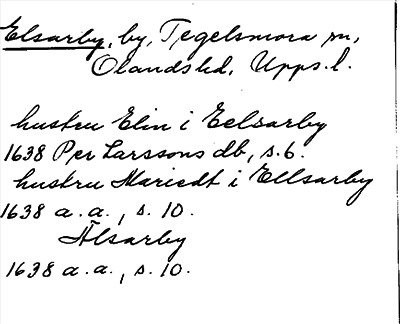 Elsarby, by, Tegelsmora sn,
Olandshd, Upps.l.
hustru Elin i Eelsarby
1638 Per Larssons db, s.6.
hustru Mariedt i Ellsarby
1638 a.a., s. 10.
Älsarby
1638 a.a., s. 10.